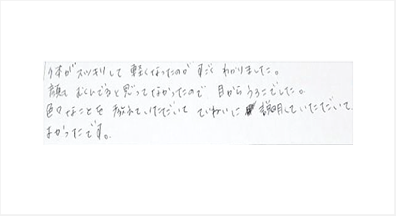 体がスッキリして 軽くなったのが すごく わかりました。
顔も むくんでると思ってなかったので 目からうろこでした。
色々なことを 教えていただいて ていねいに 説明していただいて
よかったです。